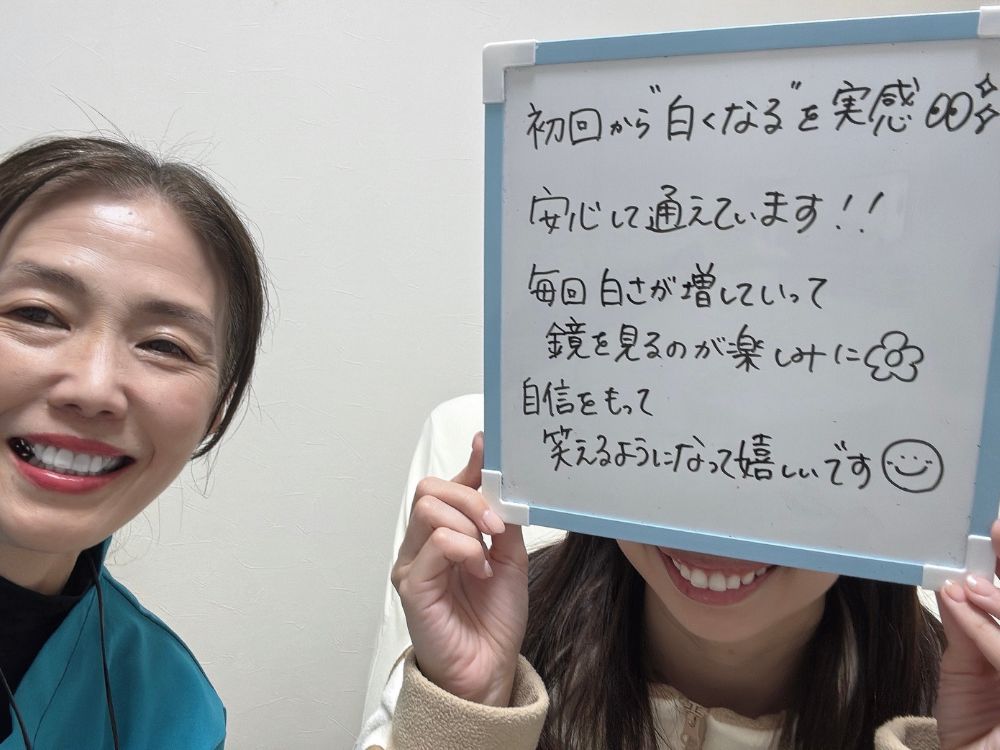 初回から"白くなる"を実感
安心して通えています!!
毎回白さが増していって
鏡を見るのが楽しみに
自信をもって
笑えるようになって嬉しいです